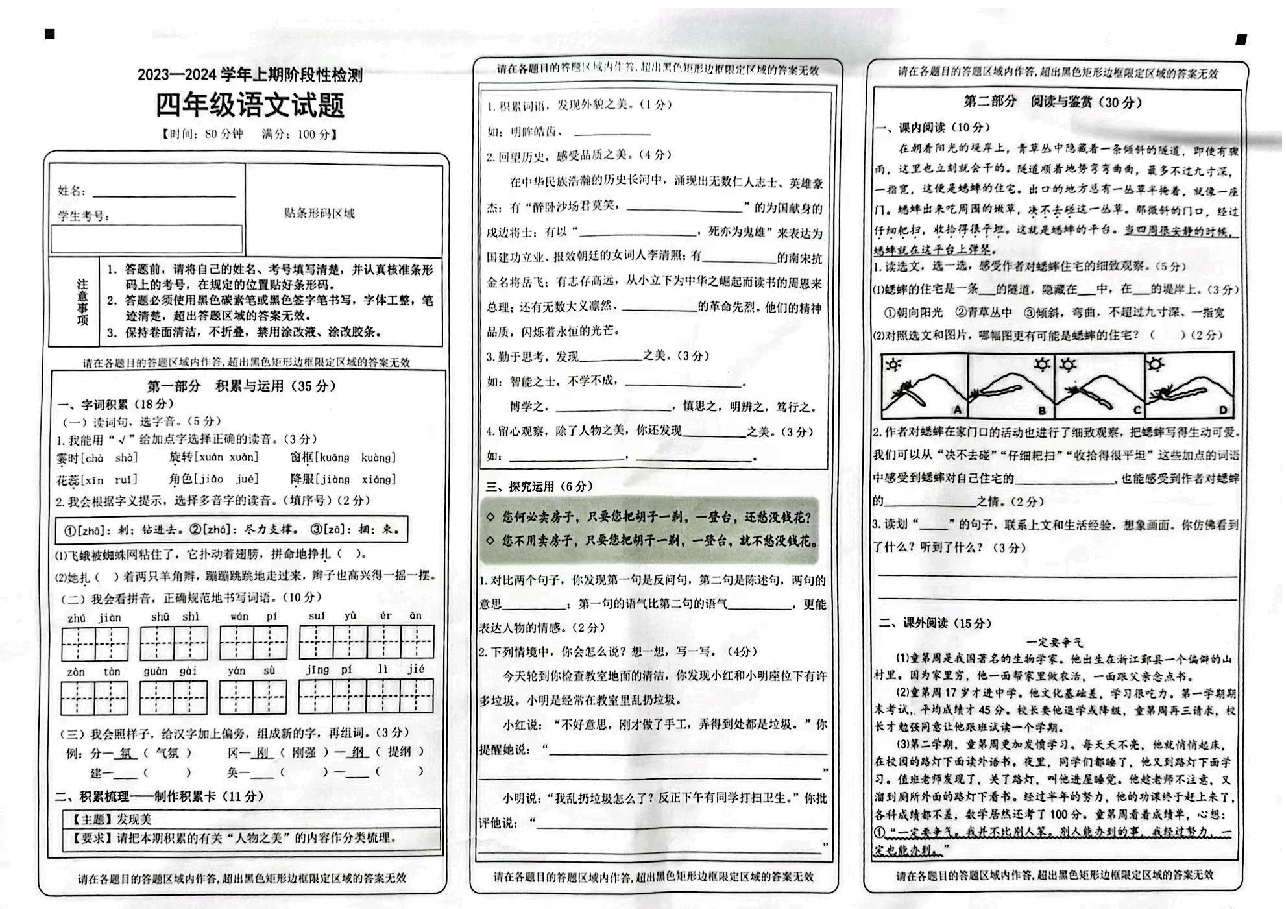 2023—2024学年上期阶段性检测
四年级语文试题
【时间：80分钟 满分：100分】
姓名：
学生考号：
贴条形码区域
注意事项
1. 答题前，请将自己的姓名、考号填写清楚，并认真核准条形
码上的考号，在规定的位置贴好条形码。
2. 答题必须使用黑色碳素笔或黑色签字笔书写，字体工整，笔
迹清楚，超出答题区域的答案无效。
3. 保持卷面清洁，不折叠，禁用涂改液、涂改胶条。
请在各题目的答题区域内作答，超出黑色矩形边框限定区域的答案无效
第一部分 积累与运用（35分）
一、字词积累（18分）
（一）读词句，选字音。（5分）
1.我能用“√”给加点字选择正确的读音。（3分）
霎时[chà shà] 旋转[xuán xuàn] 窗框[kuāng kuàng]
花蕊[xīn ruǐ] 角色[jiǎo jué] 降服[jiàng xiáng]
2.我会根据字义提示，选择多音字的读音。（填序号）（2分）
①[zhā]：刺；钻进去。②[zhá]：尽力支撑。③[zā]：捆；束。
⑴飞蛾被蜘蛛网粘住了，它扑动着翅膀，拼命地挣扎（ ）。
⑵她扎（ ）着两只羊角辫，蹦蹦跳跳地走过来，辫子也高兴得一摇一摆。
（二）我会看拼音，正确规范地书写词语。（10分）
zhú jiàn shū shì wán pí suí yù ér ān
zàn tàn guàn gài yán sù jīng pí lì jié
（三）我会照样子，给汉字加上偏旁，组成新的字，再组词。（3分）
例：分—氛（气氛） 冈—刚（刚强）—纲（提纲）
建—___（ ） 奂—___（ ）—___（ ）
二、积累梳理——制作积累卡（11分）
【主题】发现美
【要求】请把本期积累的有关“人物之美”的内容作分类梳理。
请在各题目的答题区域内作答，超出黑色矩形边框限定区域的答案无效
请在各题目的答题区域内作答，超出黑色矩形边框限定区域的答案无效
1.积累词语，发现外貌之美。（1分）
如：明眸皓齿、___________
2.回望历史，感受品质之美。（4分）
在中华民族浩瀚的历史长河中，涌现出无数仁人志士、英雄豪
杰：有“醉卧沙场君莫笑，________________”的为国献身的
戍边将士；有以“________________，死亦为鬼雄”来表达为
国建功立业、报效朝廷的女词人李清照；有__________的南宋抗
金名将岳飞；有志存高远，从小立下为中华之崛起而读书的周恩来
总理；还有无数大义凛然、__________的革命先烈，他们的精神
品质，闪烁着永恒的光芒。
3.勤于思考，发现________之美。（3分）
如：智能之士，不学不成，________________。
博学之，________________，慎思之，明辨之，笃行之。
4.留心观察，除了人物之美，你还发现________之美。（3分）
如：________________，________________。
三、探究运用（6分）
◇ 您何必卖房子，只要您把胡子一剃，一登台，还愁没钱花？
◇ 您不用卖房子，只要您把胡子一剃，一登台，就不愁没钱花。
1.对比两个句子，你发现第一句是反问句，第二句是陈述句，两句的
意思________；第一句的语气比第二句的语气________，更能
表达人物的情感。（2分）
2.下列情境中，你会怎么说？想一想，写一写。（4分）
今天轮到你检查教室地面的清洁，你发现小红和小明座位下有许
多垃圾，小明是经常在教室里乱扔垃圾。
小红说：“不好意思，刚才做了手工，弄得到处都是垃圾。”你
提醒她说：“________________
________________”
小明说：“我乱扔垃圾怎么了？反正下午有同学打扫卫生。”你批
评他说：“________________
________________”
请在各题目的答题区域内作答，超出黑色矩形边框限定区域的答案无效
请在各题目的答题区域内作答，超出黑色矩形边框限定区域的答案无效
第二部分 阅读与鉴赏（30分）
一、课内阅读（10分）
在朝着阳光的堤岸上，青草丛中隐藏着一条倾斜的隧道，即使有骤
雨，这里也立刻就会干的。隧道顺着地势弯弯曲曲，最多不过九寸深，
一指宽，这便是蟋蟀的住宅。出口的地方总有一丛草半掩着，就像一座
门。蟋蟀出来吃周围的嫩草，决不去碰这一丛草。那微斜的门口，经过
仔细耙扫，收拾得很平坦。这就是蟋蟀的平台。当四周很安静的时候，
蟋蟀就在这平台上弹琴。
1.读选文，选一选，感受作者对蟋蟀住宅的细致观察。（5分）
⑴蟋蟀的住宅是一条___的隧道，隐藏在___中，在___的堤岸上。（3分）
①朝向阳光 ②青草丛中 ③倾斜，弯曲，不超过九寸深、一指宽
⑵对照选文和图片，哪幅图更有可能是蟋蟀的住宅？（ ）（2分）
A B C D
2.作者对蟋蟀在家门口的活动也进行了细致观察，把蟋蟀写得生动可爱。
我们可以从“决不去碰”“仔细耙扫”“收拾得很平坦”这些加点的词语
中感受到蟋蟀对自己住宅的______________，也能感受到作者对蟋蟀
的______________之情。（2分）
3.读划“____”的句子，联系上文和生活经验，想象画面。你仿佛看到
了什么？听到了什么？（3分）
二、课外阅读（15分）
一定要争气
⑴童第周是我国著名的生物学家。他出生在浙江鄞县一个偏僻的山
村里。因为家里穷，他一面帮家里做农活，一面跟父亲念点书。
⑵童第周17岁才进中学。他文化基础差，学习很吃力。第一学期期
末考试，平均成绩才45分。校长要他退学或降级，童第周再三请求，校
长才勉强同意让他跟班试读一个学期。
⑶第二学期，童第周更加发愤学习。每天天不亮，他就悄悄起床，
在校园的路灯下面读外语书。夜里，同学们都睡了，他又到路灯下面学
习。值班老师发现了，关了路灯，叫他进屋睡觉。他趁老师不注意，又
溜到厕所外面的路灯下看书。经过半年的努力，他的功课终于赶上来了，
各科成绩都不差，数学居然还考了100分。童第周看着成绩单，心想：
①“一定要争气。我并不比别人笨。别人能办到的事，我经过努力，一
定也能办到。”
请在各题目的答题区域内作答，超出黑色矩形边框限定区域的答案无效